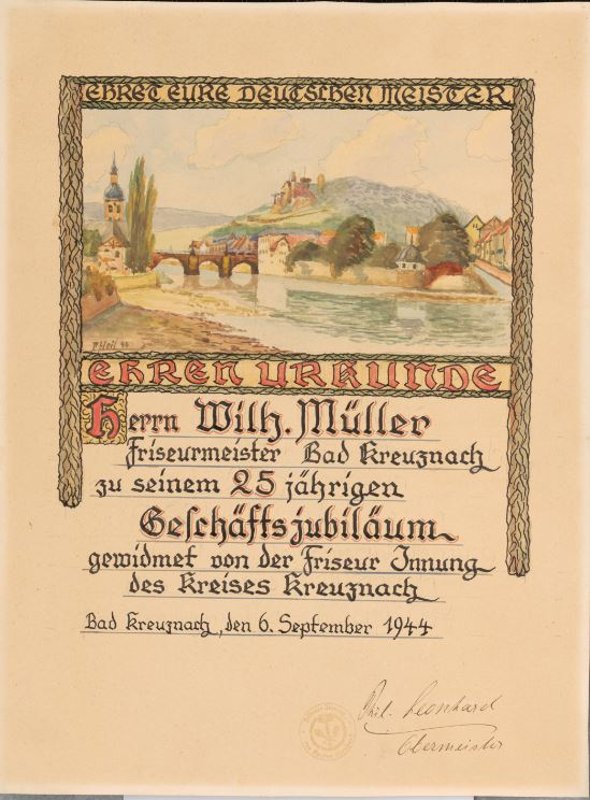 EHRET EURE DEUTSCHEN MEISTER
EHREN URKUNDE
Herrn Wilh. Müller
Friseurmeister Bad Kreuznach
zu seinem 25 jährigen
Geschäftsjubiläum
gewidmet von der Friseur Innung
des Kreises Kreuznach
Bad Kreuznach, den 6. September 1944
Phil. Leonhard
Obermeister